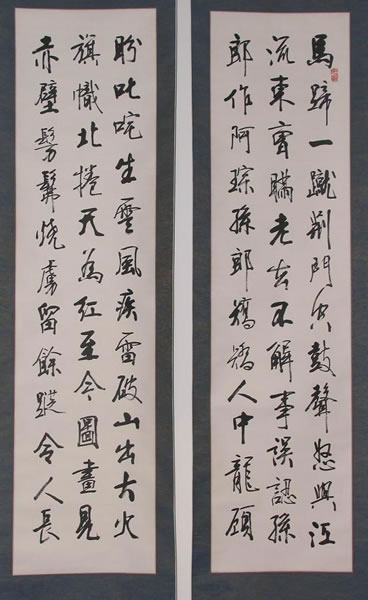 馬蹄一蹴荊門空鼓聲怒與江
流東曹瞞老去不解事誤認孫
郎作阿琮孫郎矯矯人中龍顧
盼叱咤生雲風疾雷破山出大火
旗幟北捲天為紅至今圖畫見
赤壁髣髴燒虜留餘蹤令人長